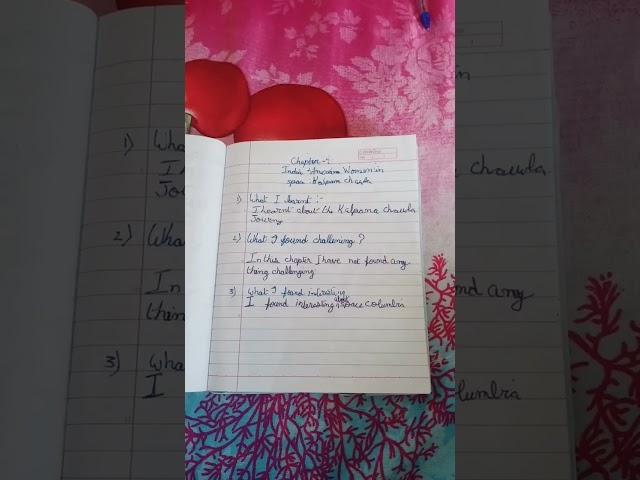 Chapter-4
India Amercian Women in
space Kalpana chawla
1) What I learnt :-
I learnt about the Kalpana chawla
Journy
2) What I found challening?
In this chapter I have not found any-
thing challenging
3) What I found intersting
I found interesting about space columbia